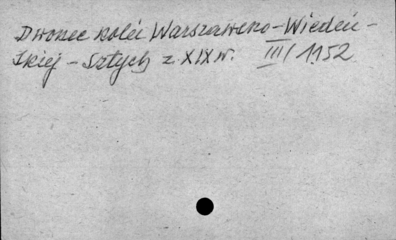 Dworzec kolei Warszawsko-Wiedeń-
skiej - Sztych z XIX w. III/1152